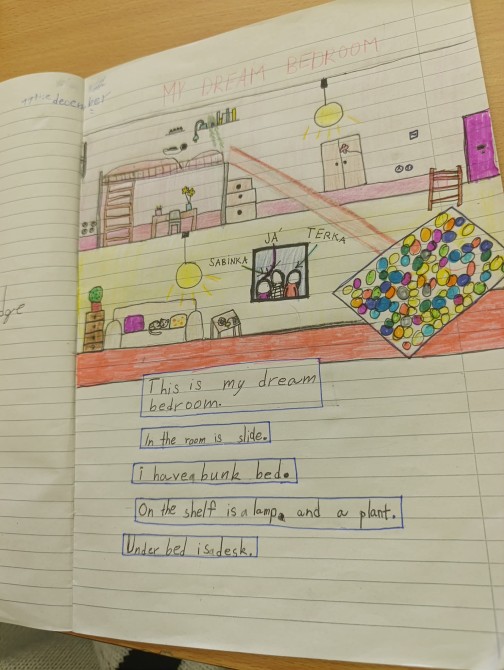 MY DREAM BEDROOM
JÁ
TERKA
SABINKA
This is my dream
bedroom.
In the room is slide.
i have a bunk bed.
On the shelf is a lamp and a plant.
Under bed is a desk.